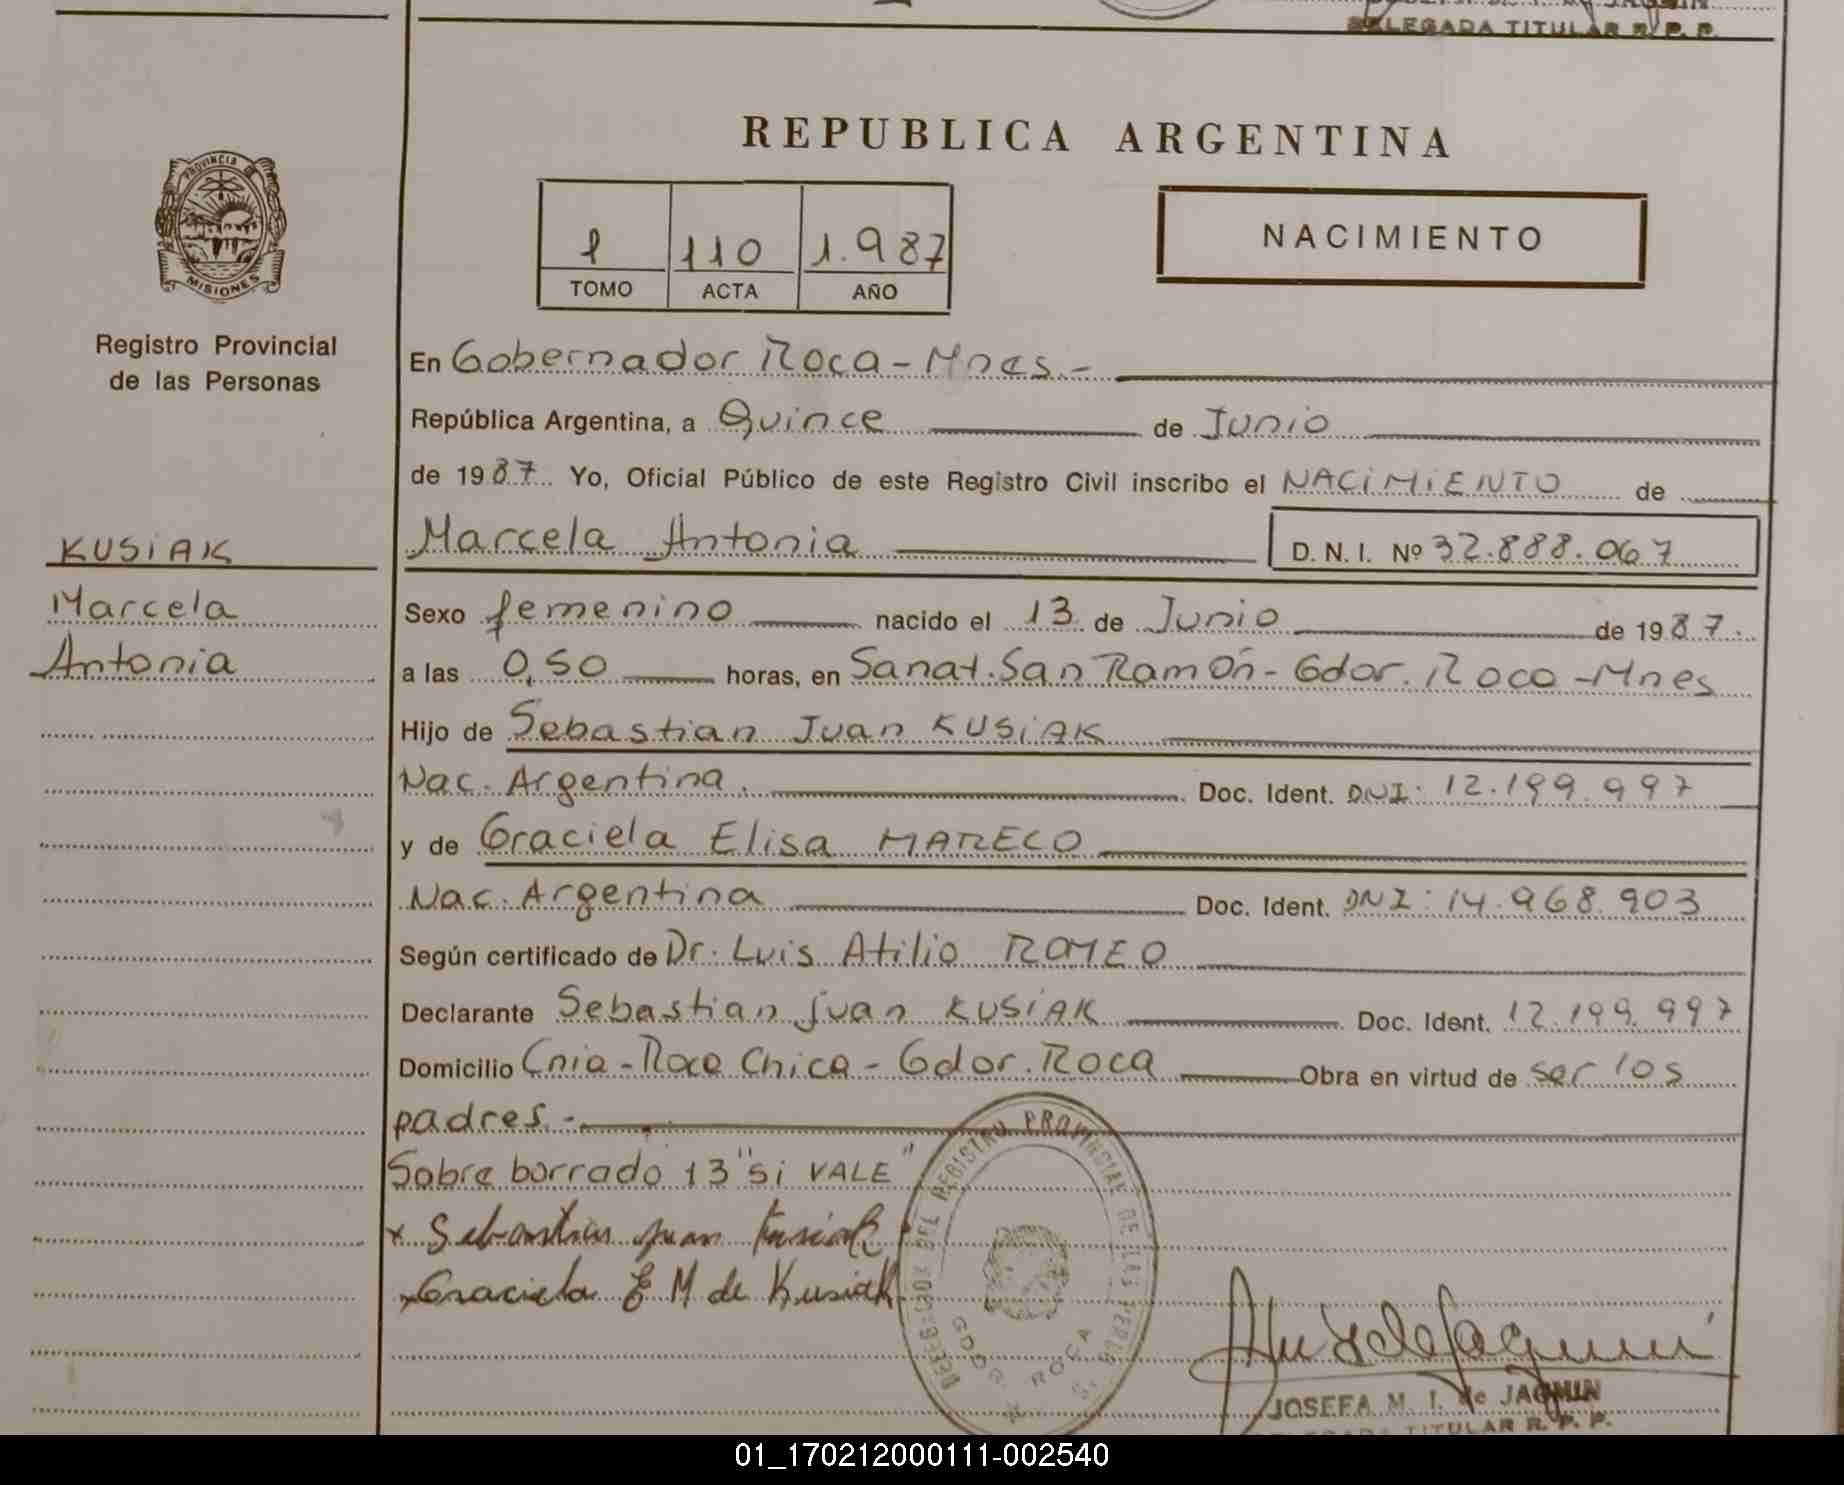 DELEGADA TITULAR R. P. P.
REPUBLICA ARGENTINA
PROVINCIA DE
MISIONES
Registro Provincial
de las Personas
1 110 1.987
TOMO ACTA AÑO
NACIMIENTO
En Gobernador Roca - Mnes.-
República Argentina, a Quince de Junio
de 1987. Yo, Oficial Público de este Registro Civil inscribo el NACIMIENTO de
KUSIAK
Marcela
Antonia
Marcela Antonia D. N. I. Nº 32.888.067
Sexo femenino nacido el 13 de Junio de 1987.
a las 0,50 horas, en Sanat. San Ramón - Gdor. Roca - Mnes
Hijo de Sebastian Juan KUSIAK
Nac. Argentina. Doc. Ident. DNI: 12.199.997
y de Graciela Elisa MARECO
Nac. Argentina Doc. Ident. DNI: 14.968.903
Según certificado de Dr. Luis Atilio ROMEO
Declarante Sebastian juan KUSIAK Doc. Ident. 12.199.997
Domicilio Cnia - Roca Chica - Gdor. Roca Obra en virtud de ser los
padres.-
Sobre borrado 13 "si VALE"
x Sebastian juan Kusiak
x Graciela E M de Kusiak
DEL REGISTRO PROVINCIAL DE LAS PERSONAS
GDOR. ROCA
JOSEFA M. I. de JAQMIN
DELEGADA TITULAR R. P. P.
01_170212000111-002540